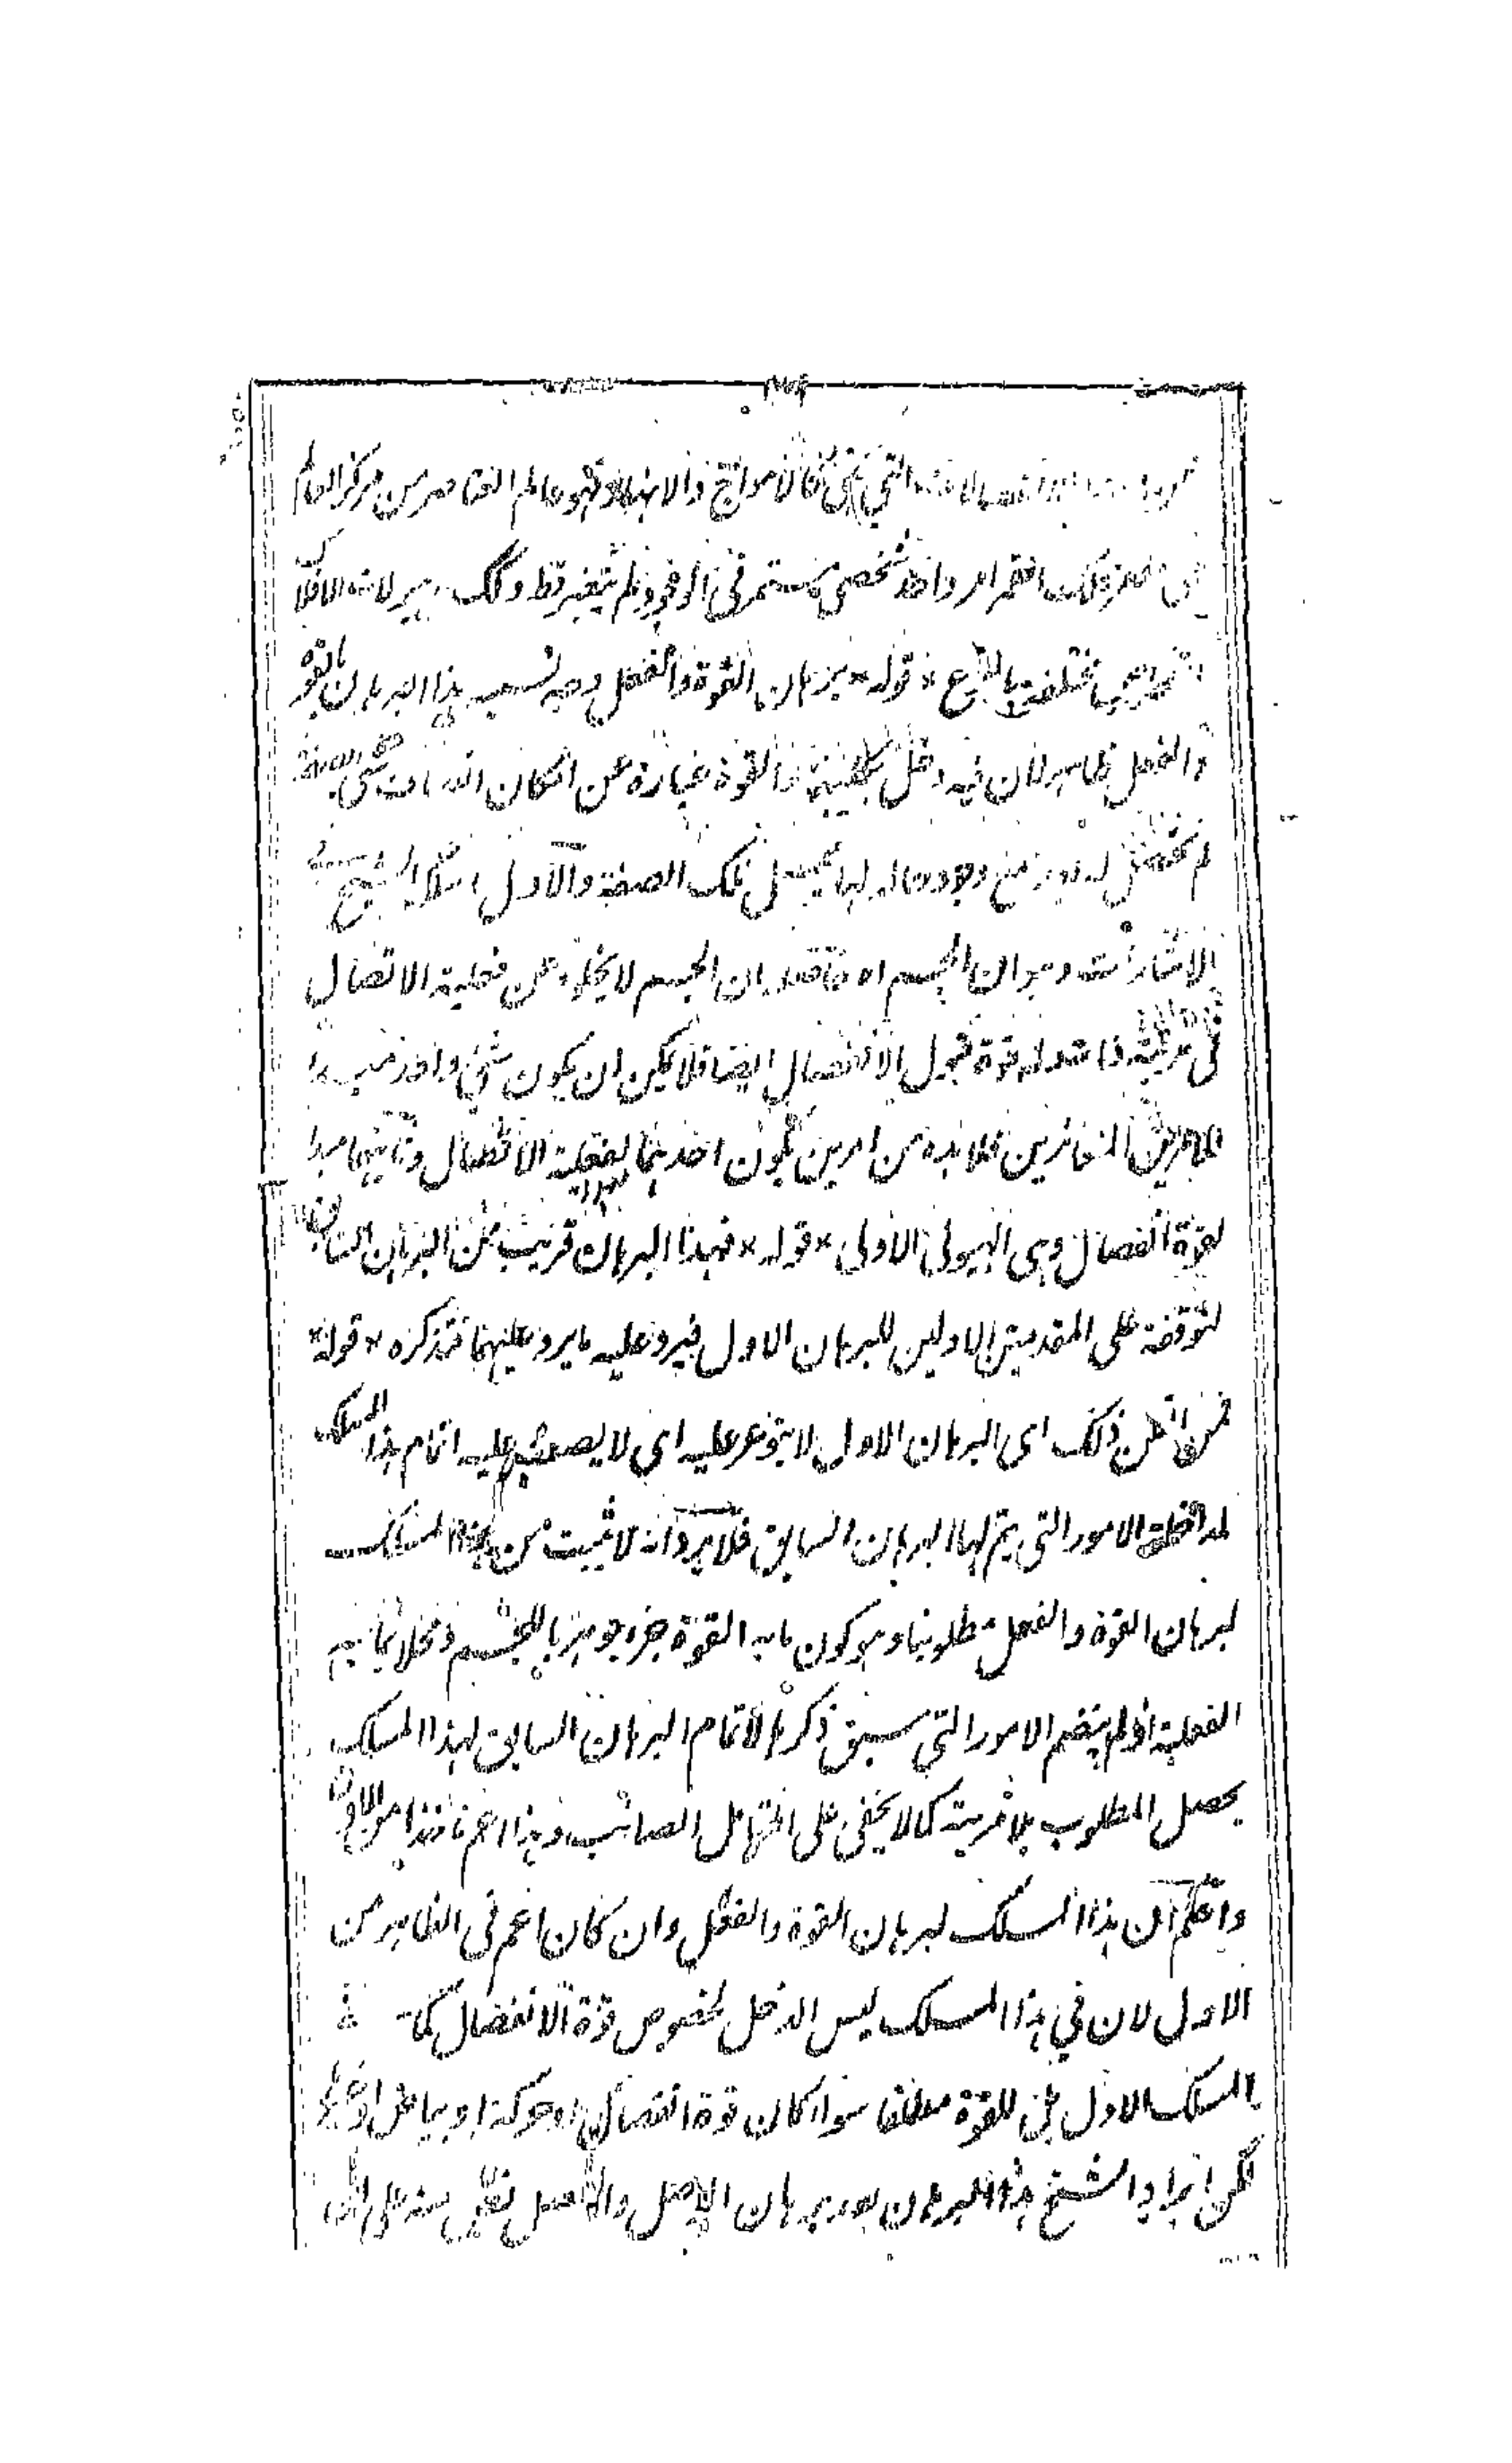 التي هي كالأمواج والانهار وهو عالم العناصر من مركز العالم
امر واحد شخصي مستمر في الوجود لم يتغير قط وكك هيولات الافلاك
مختلفة بالنوع * قوله * برهان القوة والفعل وجه تسمية هذا البرهان بالقوة
والفعل ظاهر لان فيه دخل لكليهما فالقوة عبارة عن امكان
تلك الصفة والاول الشيخ
الاشارات وهو ان الجسم اه فاقصد ان الجسم لا يخلو عن فعلية الاتصال
في مرتبة ذاته وله قوة قبول الانفصال ايضا فلا يمكن ان يكون شئ واحد مبدء
للامرين المتغائرين فلا بد من امرين يكون احدهما لفعلية الاتصال وثانيهما مبدا
لقوة انفصال وهى الهيولى الاولى * قوله * فهذا البرهان قريب من البرهان السابق
لتوقفه على المقدمتين الاوليين للبرهان الاول فيرد عليه ما يرد عليهما فتذكره * قوله *
فمن اتقن ذلك اى البرهان الاول لا يتوعر عليه اى لا يصعب عليه اتمام هذا المسلك
لمداخلة الامور التي يتم بها البرهان السابق فلا يرد انه لا يثبت من هذا المسلك
لبرهان القوة والفعل مطلوبنا وهو كون ما به القوة جزء جوهريا للجسم ومحلا لما به
الفعلية اذ لم ينضم الامور التي سبق ذكرها لاتمام البرهان السابق لهذا المسلك
يحصل المطلوب بلا مرية كما لا يخفى على المتأمل الصائب وهذا اعم مأخذا من الاول
واعلم ان هذا المسلك لبرهان القوة والفعل وان كان اعم في الظاهر من
الاول لان في هذا المسلك ليس الدخل لخصوص قوة الانفصال كما في
المسلك الاول بل للقوة مطلقا سواء كان قوة انفصال او حركة او بياض او غيره
لكن ايراد الشيخ هذا البرهان بعد برهان الوصل والفصل على ان